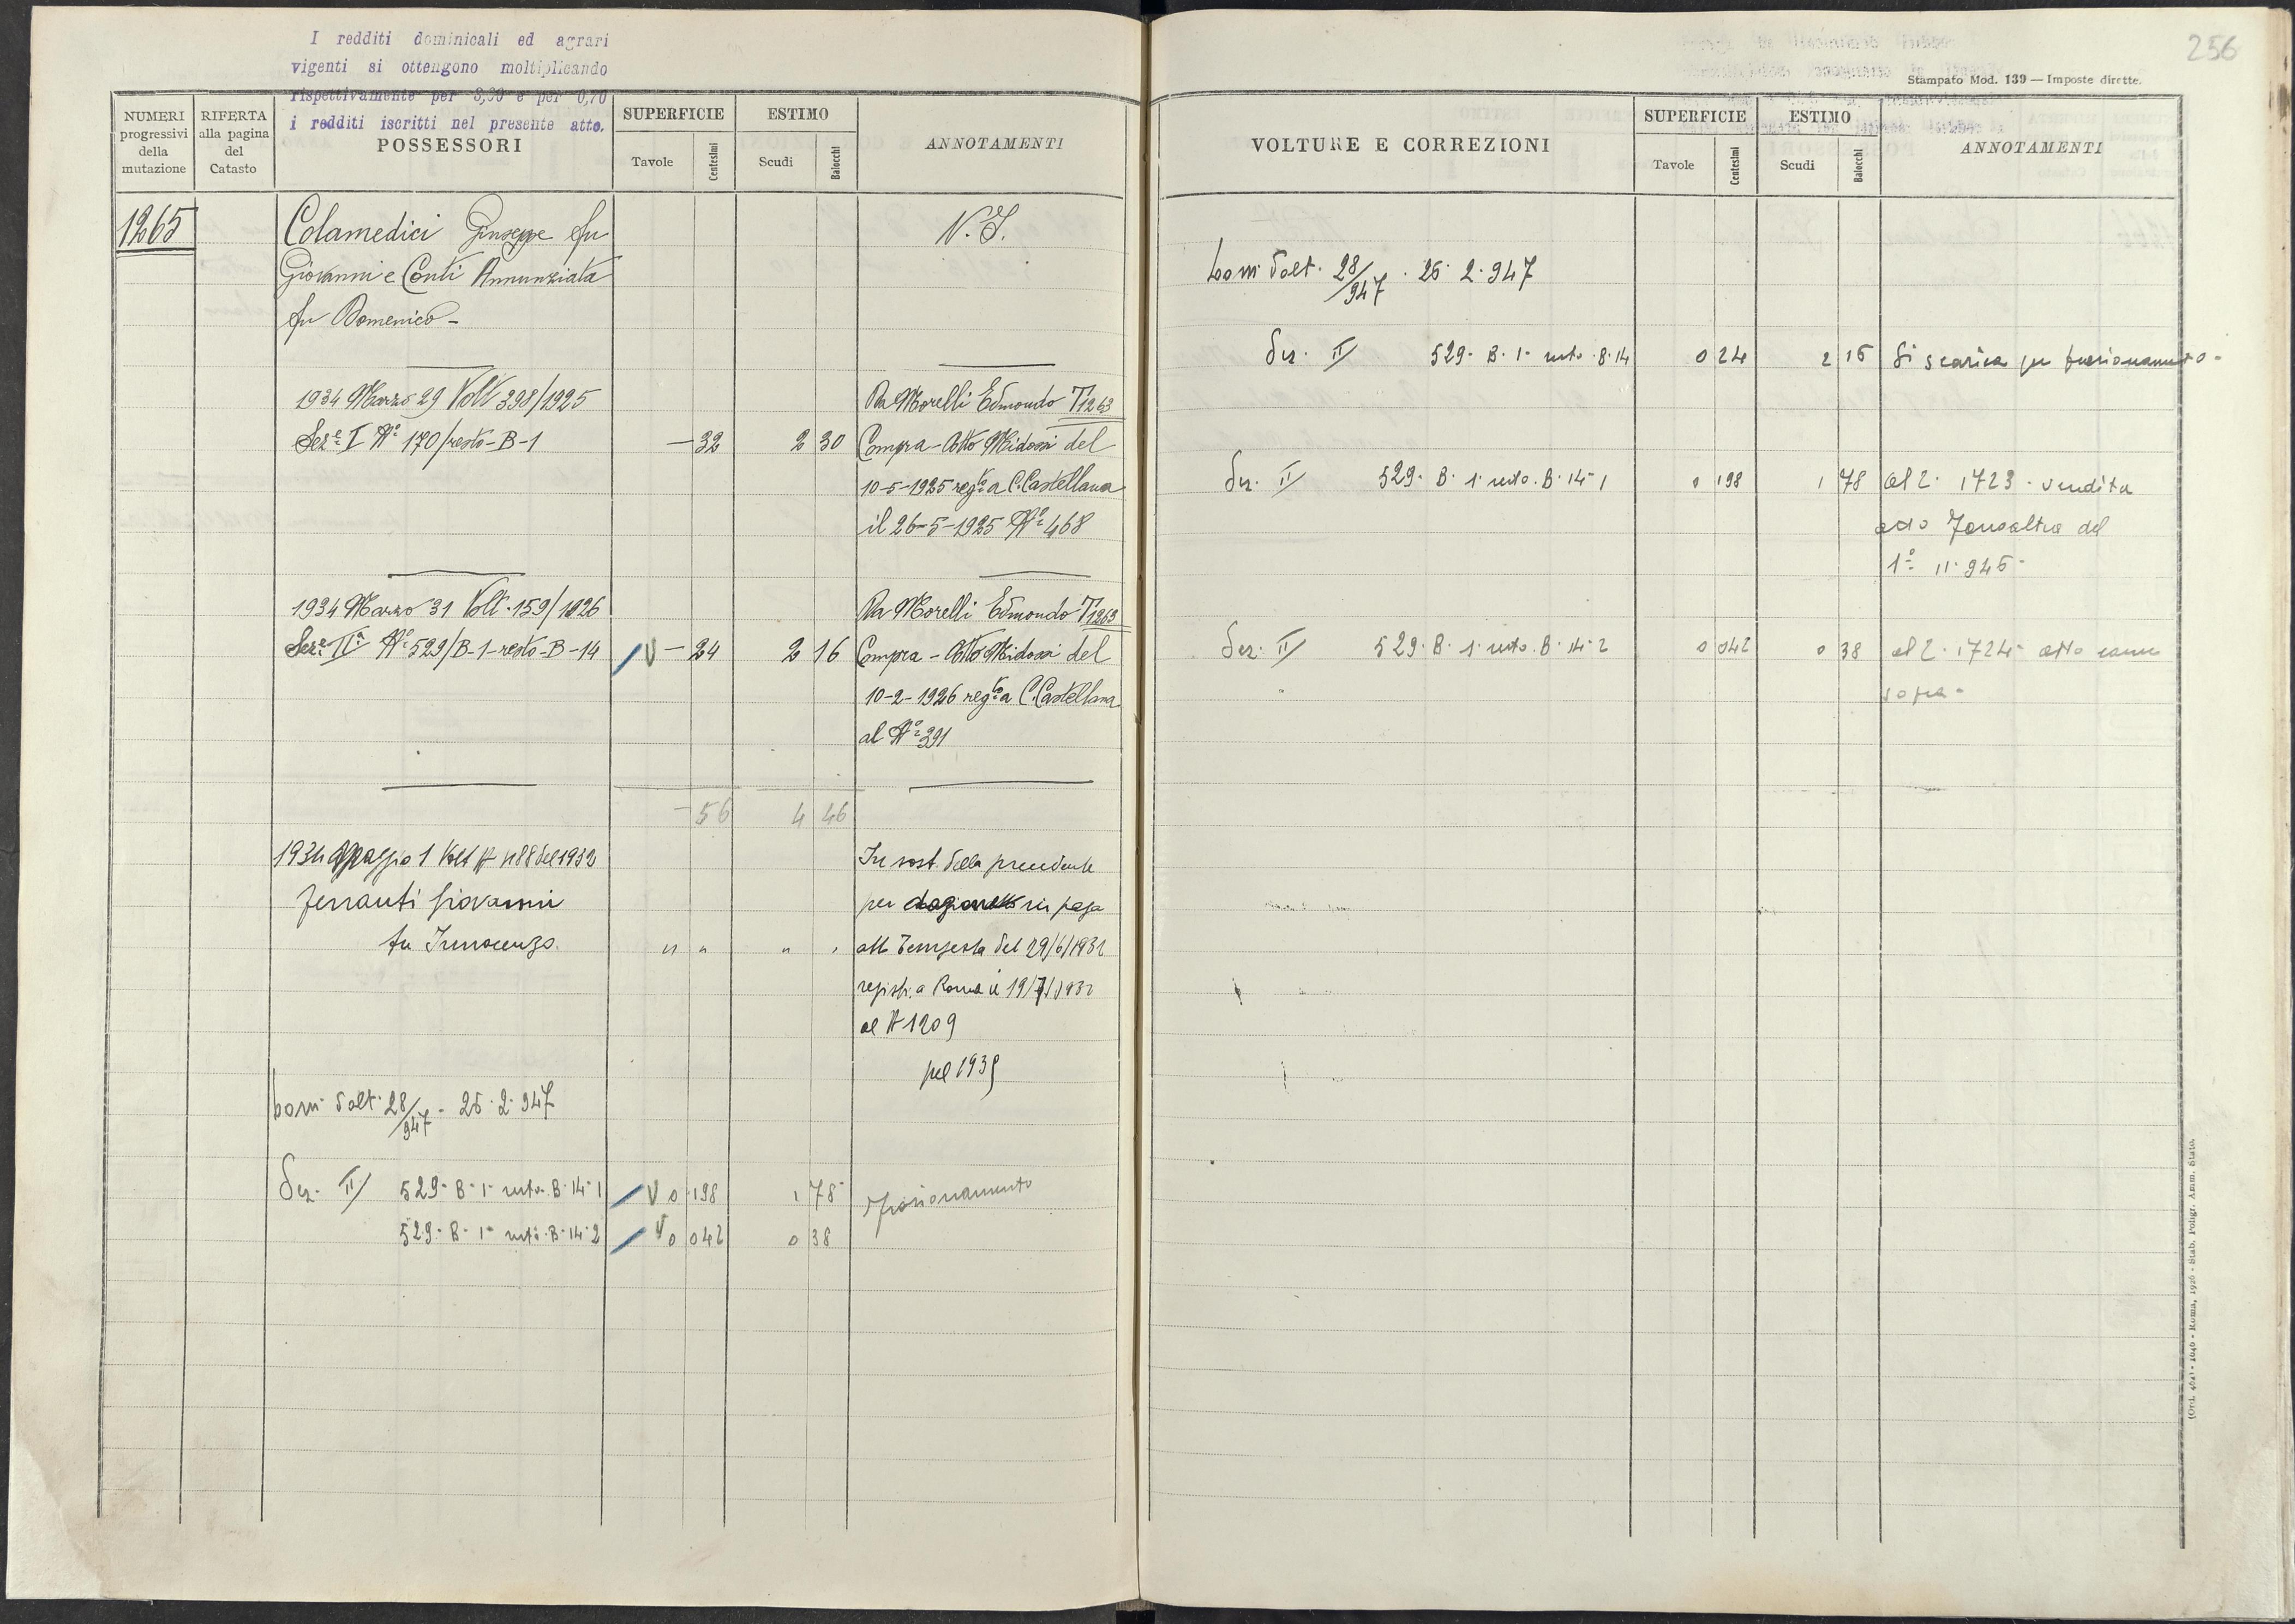 I redditi dominicali ed agrari
vigenti si ottengono moltiplicando
rispettivamente per 3,90 e per 0,70
i redditi iscritti nel presente atto.
NUMERI progressivi della mutazione
RIFERTA alla pagina del Catasto
POSSESSORI
SUPERFICIE
Tavole Centesimi
ESTIMO
Scudi Baiocchi
ANNOTAMENTI
1265 Colamedici Giuseppe fu N. I.
Giovanni e Conti Annunziata
fu Domenico -
1934 Marzo 29 Volt 398/1925 Da Morelli Edmondo T1263
Sez.e I N.o 170/resto-B-1 — 32 2 30 Compra - Atto Midossi del
10-5-1925 reg.to a C. Castellana
il 26-5-1925 N.o 468
1934 Marzo 31 Volt. 159/1926 Da Morelli Edmondo T1263
Sez.e II.a N.o 529/B-1-resto-B-14 V — 24 2 16 Compra - Atto Midossi del
10-2-1926 reg.to a C. Castellana
al N.o 391
- 56 4 46
1934 Maggio 1 Volt N 488 del 1932 In sost. della precedente
Ferranti Giovanni per in paga
fu Innocenzo. " " " " att Tempesta del 29/6/1932
registr. a Roma il 19/7/1932
al N 1209
pel 1935
Volt. 28/947 - 25.2.947
Sez. II 529-B-1-resto-B-14-1 V 0 198 1 78 Frazionamento
529-B-1-resto-B-14-2 V 0 042 0 38
256
Stampato Mod. 139 — Imposte dirette.
VOLTURE E CORREZIONI
SUPERFICIE
Tavole Centesimi
ESTIMO
Scudi Baiocchi
ANNOTAMENTI
Volt. 28/947 . 25.2.947
Sez. II 529-B-1-resto-B-14 0 24 2 16 Si scarica per frazionamento -
Sez. II 529-B-1-resto-B-14-1 0 198 1 78 al 2. 1723 - vendita
atto del
1° 11.946 -
Sez. II 529-B-1-resto-B-14-2 0 042 0 38 al 2. 1724 - atto come
sopra -
(Ord. 4641 - 1040 - Roma, 1926 - Stab. Poligr. Amm. Stato.